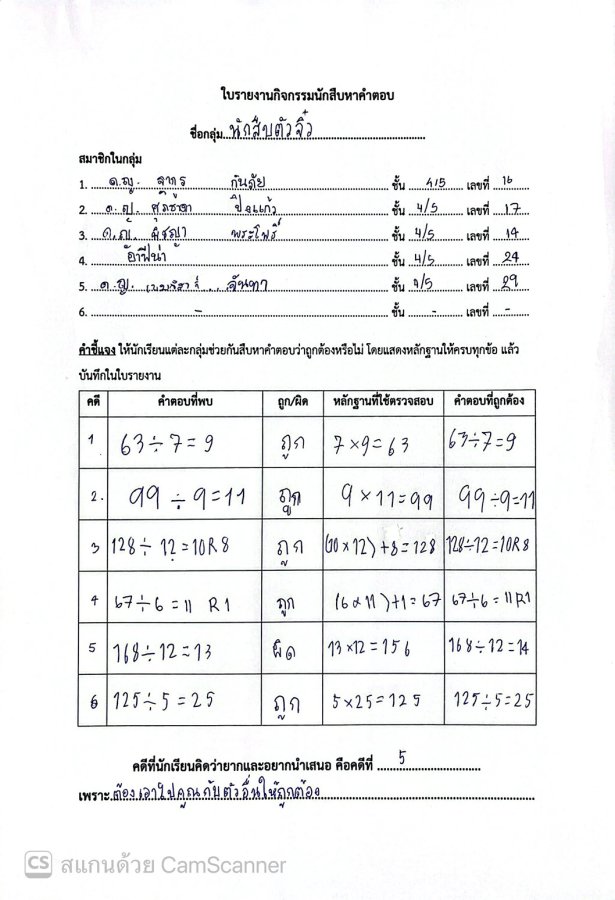 ใบรายงานกิจกรรมนักสืบหาคำตอบ
ชื่อกลุ่ม นักสืบตัวจิ๋ว
สมาชิกในกลุ่ม
1. ด.ญ. กันภัย ชั้น 4/5 เลขที่ 16
2. ด.ญ. ปิ่นแก้ว ชั้น 4/5 เลขที่ 17
3. ด.ญ. พระโพธิ์ ชั้น 4/5 เลขที่ 14
4. อาฟีน่า ชั้น 4/5 เลขที่ 24
5. ด.ญ. จันทา ชั้น 4/5 เลขที่ 29
6. - ชั้น - เลขที่ -
คำชี้แจง ให้นักเรียนแต่ละกลุ่มช่วยกันสืบหาคำตอบว่าถูกต้องหรือไม่ โดยแสดงหลักฐานให้ครบทุกข้อ แล้ว
บันทึกในใบรายงาน
คดี คำตอบที่พบ ถูก/ผิด หลักฐานที่ใช้ตรวจสอบ คำตอบที่ถูกต้อง
1 63÷7=9 ถูก 7×9=63 63÷7=9
2. 99÷9=11 ถูก 9×11=99 99÷9=11
3 128÷12=10R8 ถูก (10×12)+8=128 128÷12=10R8
4 67÷6=11 R1 ถูก (6×11)+1=67 67÷6=11R1
5 168÷12=13 ผิด 13×12=156 168÷12=14
6 125÷5=25 ถูก 5×25=125 125÷5=25
คดีที่นักเรียนคิดว่ายากและอยากนำเสนอ คือคดีที่ 5
เพราะ ต้องเอาไปคูณกับตัวอื่นให้ถูกต้อง
CS สแกนด้วย CamScanner